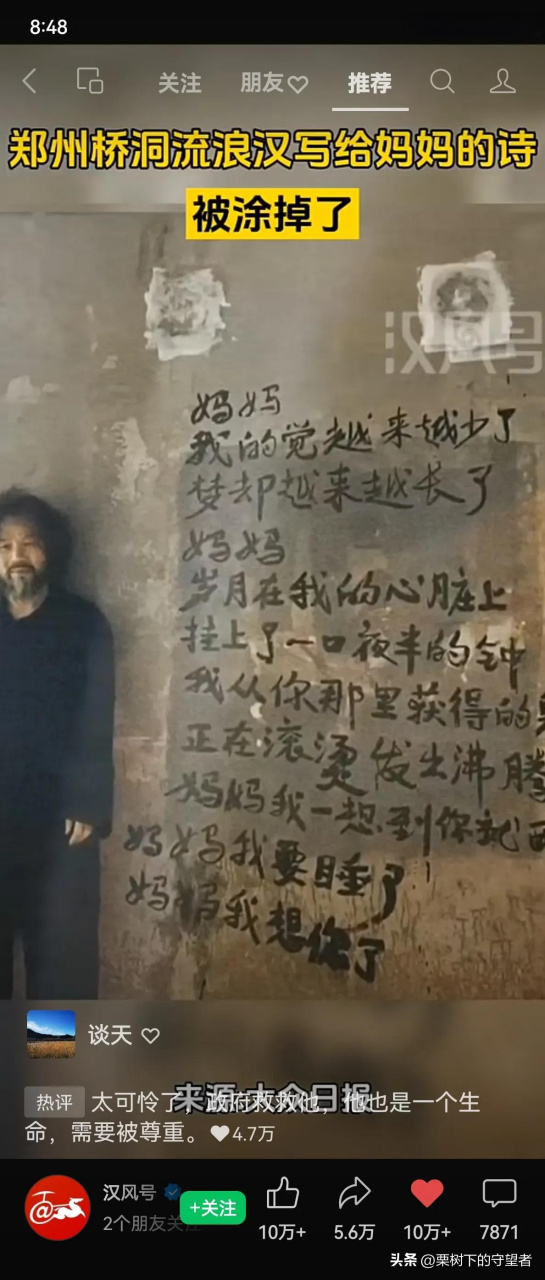 8:48
关注 朋友 推荐
郑州桥洞流浪汉写给妈妈的诗
被涂掉了
汉风号
妈妈
我的觉越来越少了
梦却越来越长了
妈妈
岁月在我的心脏上
挂上了一口夜半的钟
我从你那里获得的
正在滚烫发出沸腾
妈妈我一想到你就
妈妈我要睡了
妈妈我想你了
谈天
来源:大众日报
热评 太可怜了,政府救救他,他也是一个生
命,需要被尊重。4.7万
汉风号
+关注
2个朋友关注
10万+ 5.6万 10万+ 7871
头条 @栗树下的守望者